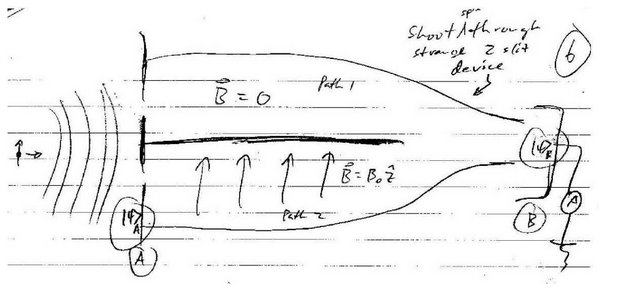 spin
Shoot ∧ through
strange 2 slit
device
6
B⃗ = 0
Path 1
B⃗ = B₀ ẑ
Path 2
|ψ>_A
A
|ψ>_B
B
A